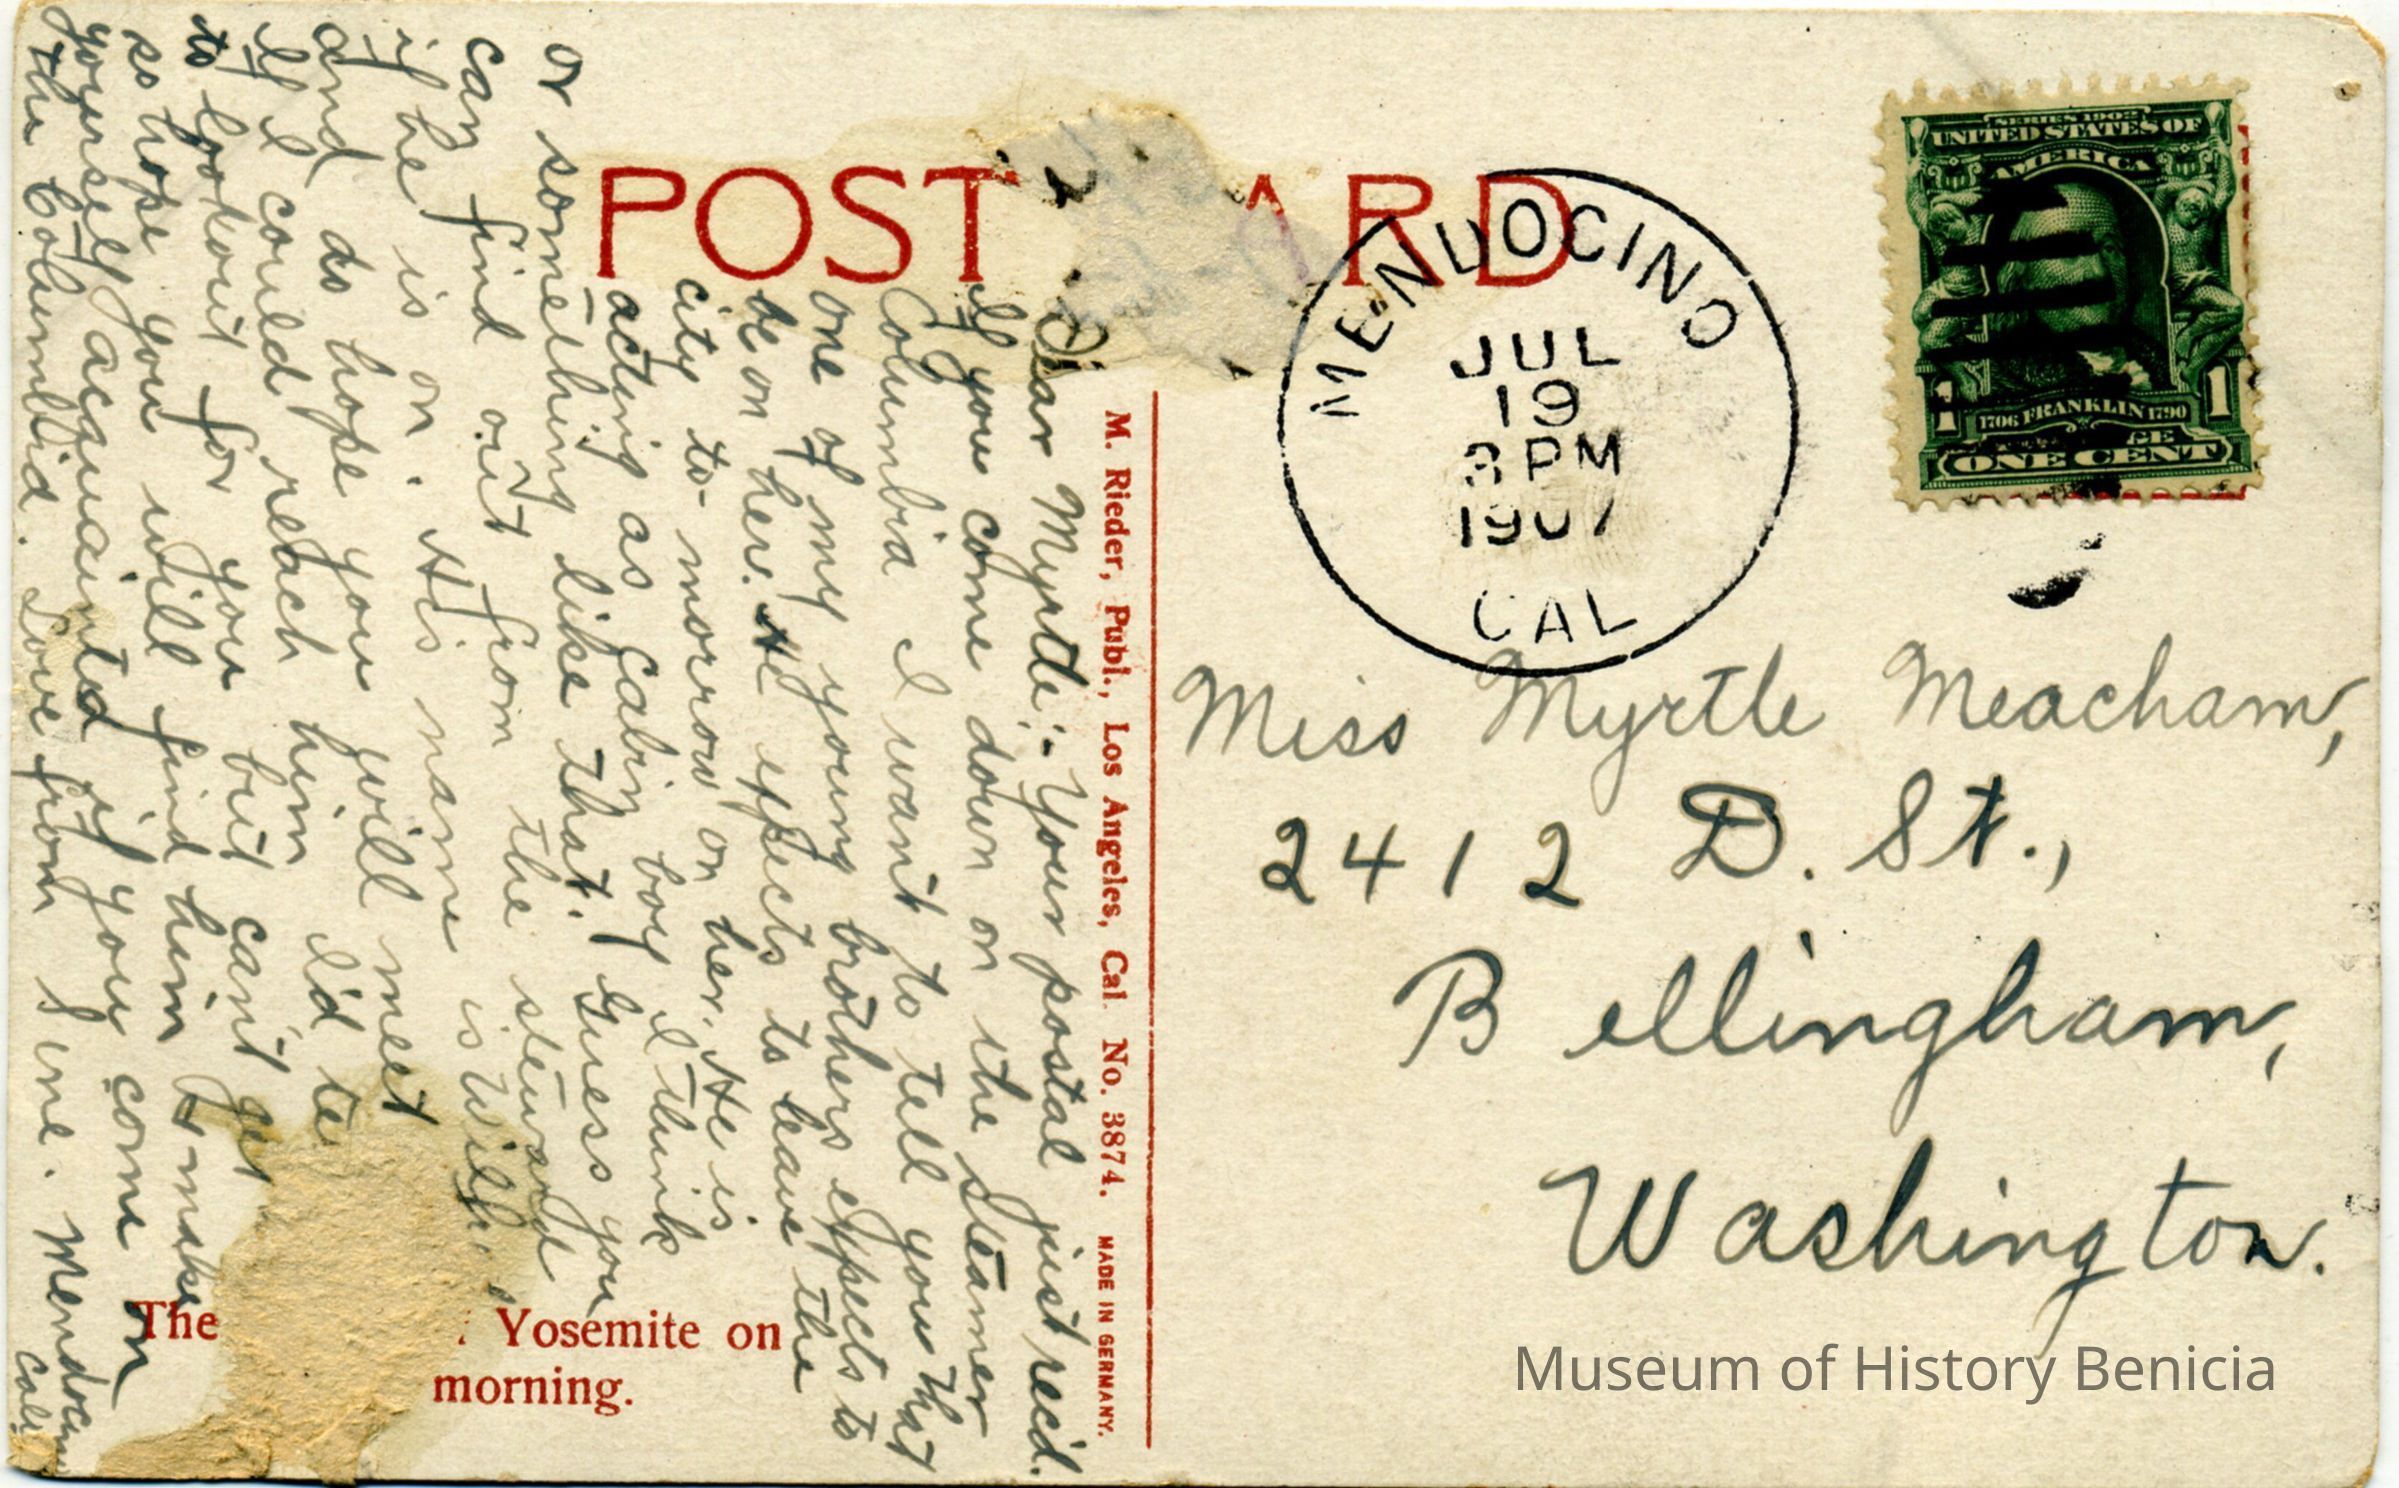 POST CARD
MENDOCINO
JUL
19
3 PM
1907
CAL
SERIES 1902
UNITED STATES OF
AMERICA
1706 FRANKLIN 1790
1 1
ONE CENT
Miss Myrtle Meacham,
2412 D. St.,
Bellingham,
Washington.
M. Rieder, Publ., Los Angeles, Cal. No. 3874. MADE IN GERMANY.
Dear Myrtle:- Your postal just rec'd.
If you come down on the steamer
Columbia I want to tell you that
one of my young brothers expects to
be on her. He expects to leave the
city to-morrow on her. He is
acting as cabin boy I think
or something like that. Guess you
can find out from the steward
if he is on. His name is Willie
and do hope you will meet
If I could reach him I'd te
to lookout for you but can't get
so hope you will find him or make
yourself acquainted if you come on
the Columbia. Love from I me. Mendocino
Cal.
The Yosemite on
morning.
Museum of History Benicia